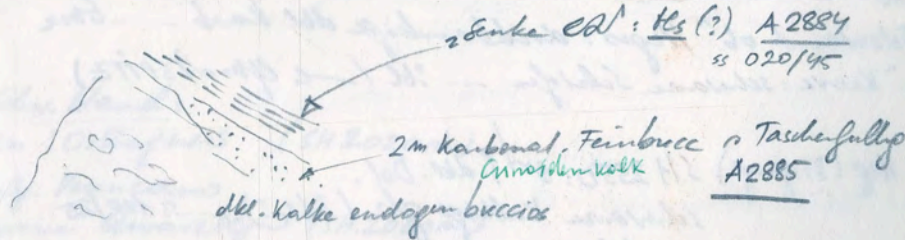 Senke : Hs (?) A 2884
ss 020/45
2m Karbonat. Feinbrecc Taschenfullg
Crinoidenkalk A2885
dkl. Kalke endogen breccios